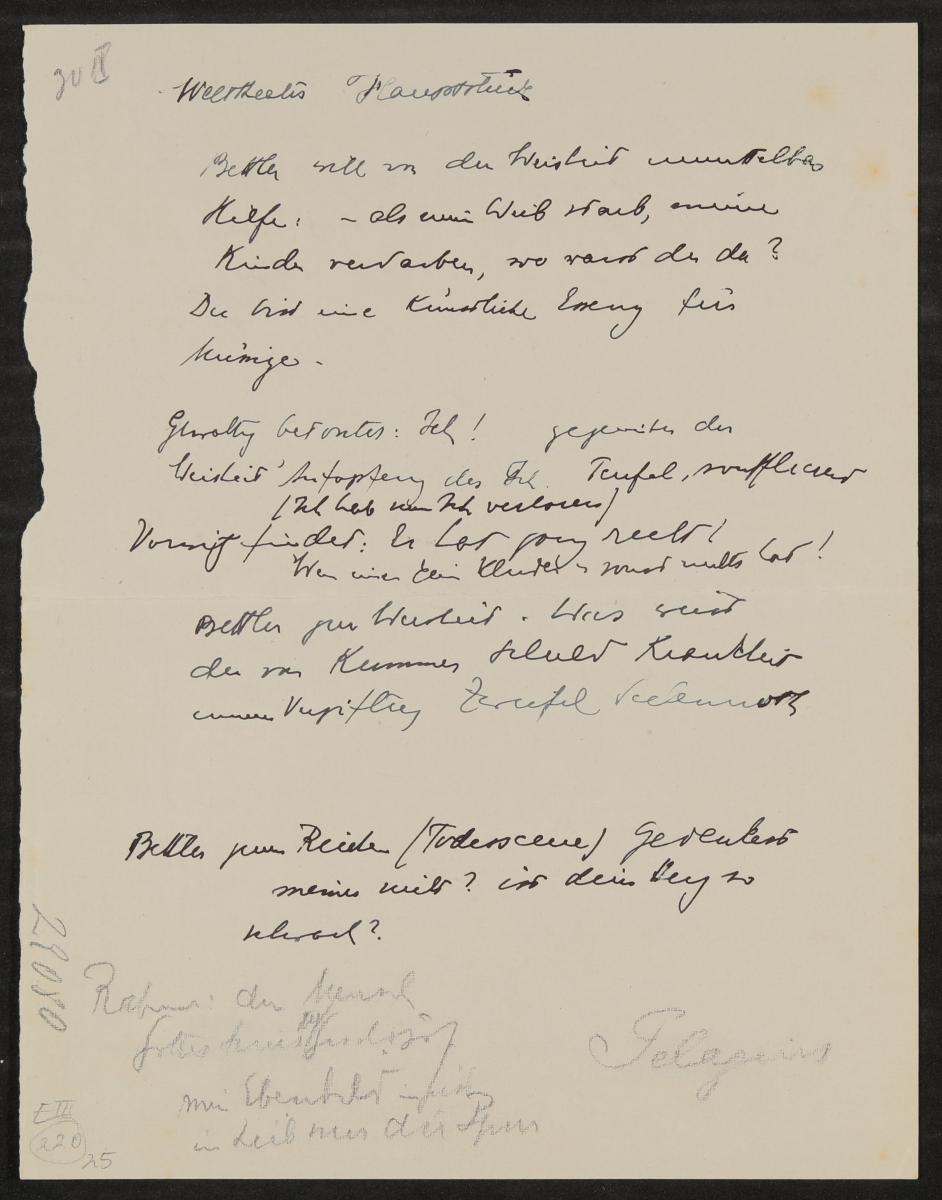 zu II
Welttheater Hauptstück
Bettler will von der Weisheit unmittelbar
Hilfe: – als mein Weib starb, meine
Kinder verdarben, wo warst du da?
Du bist eine künstliche Essenz für
Müssige –
Gewaltig betontes: Ich! gegenüber der
Weisheit Aufopferung des Ich. Teufel, soufflierend
(Ich hab mein Ich verloren)
Vorwitz findet: Er hat ganz recht!
Wenn einer kein Kleid sonst nichts hat!
Bettler zur Weisheit. Was weisst
du von Kummer Schuld Krankheit
innerer Vergiftung Zweifel Seelennoth
Bettler zum Reichen (Todesscene) Gedenkest
meiner nicht? ist dein Herz so
schwach?
der Mensch
Gottes
mein Ebenbild
im Leib nur die Spur
Pelagius
29080
E III
220
25